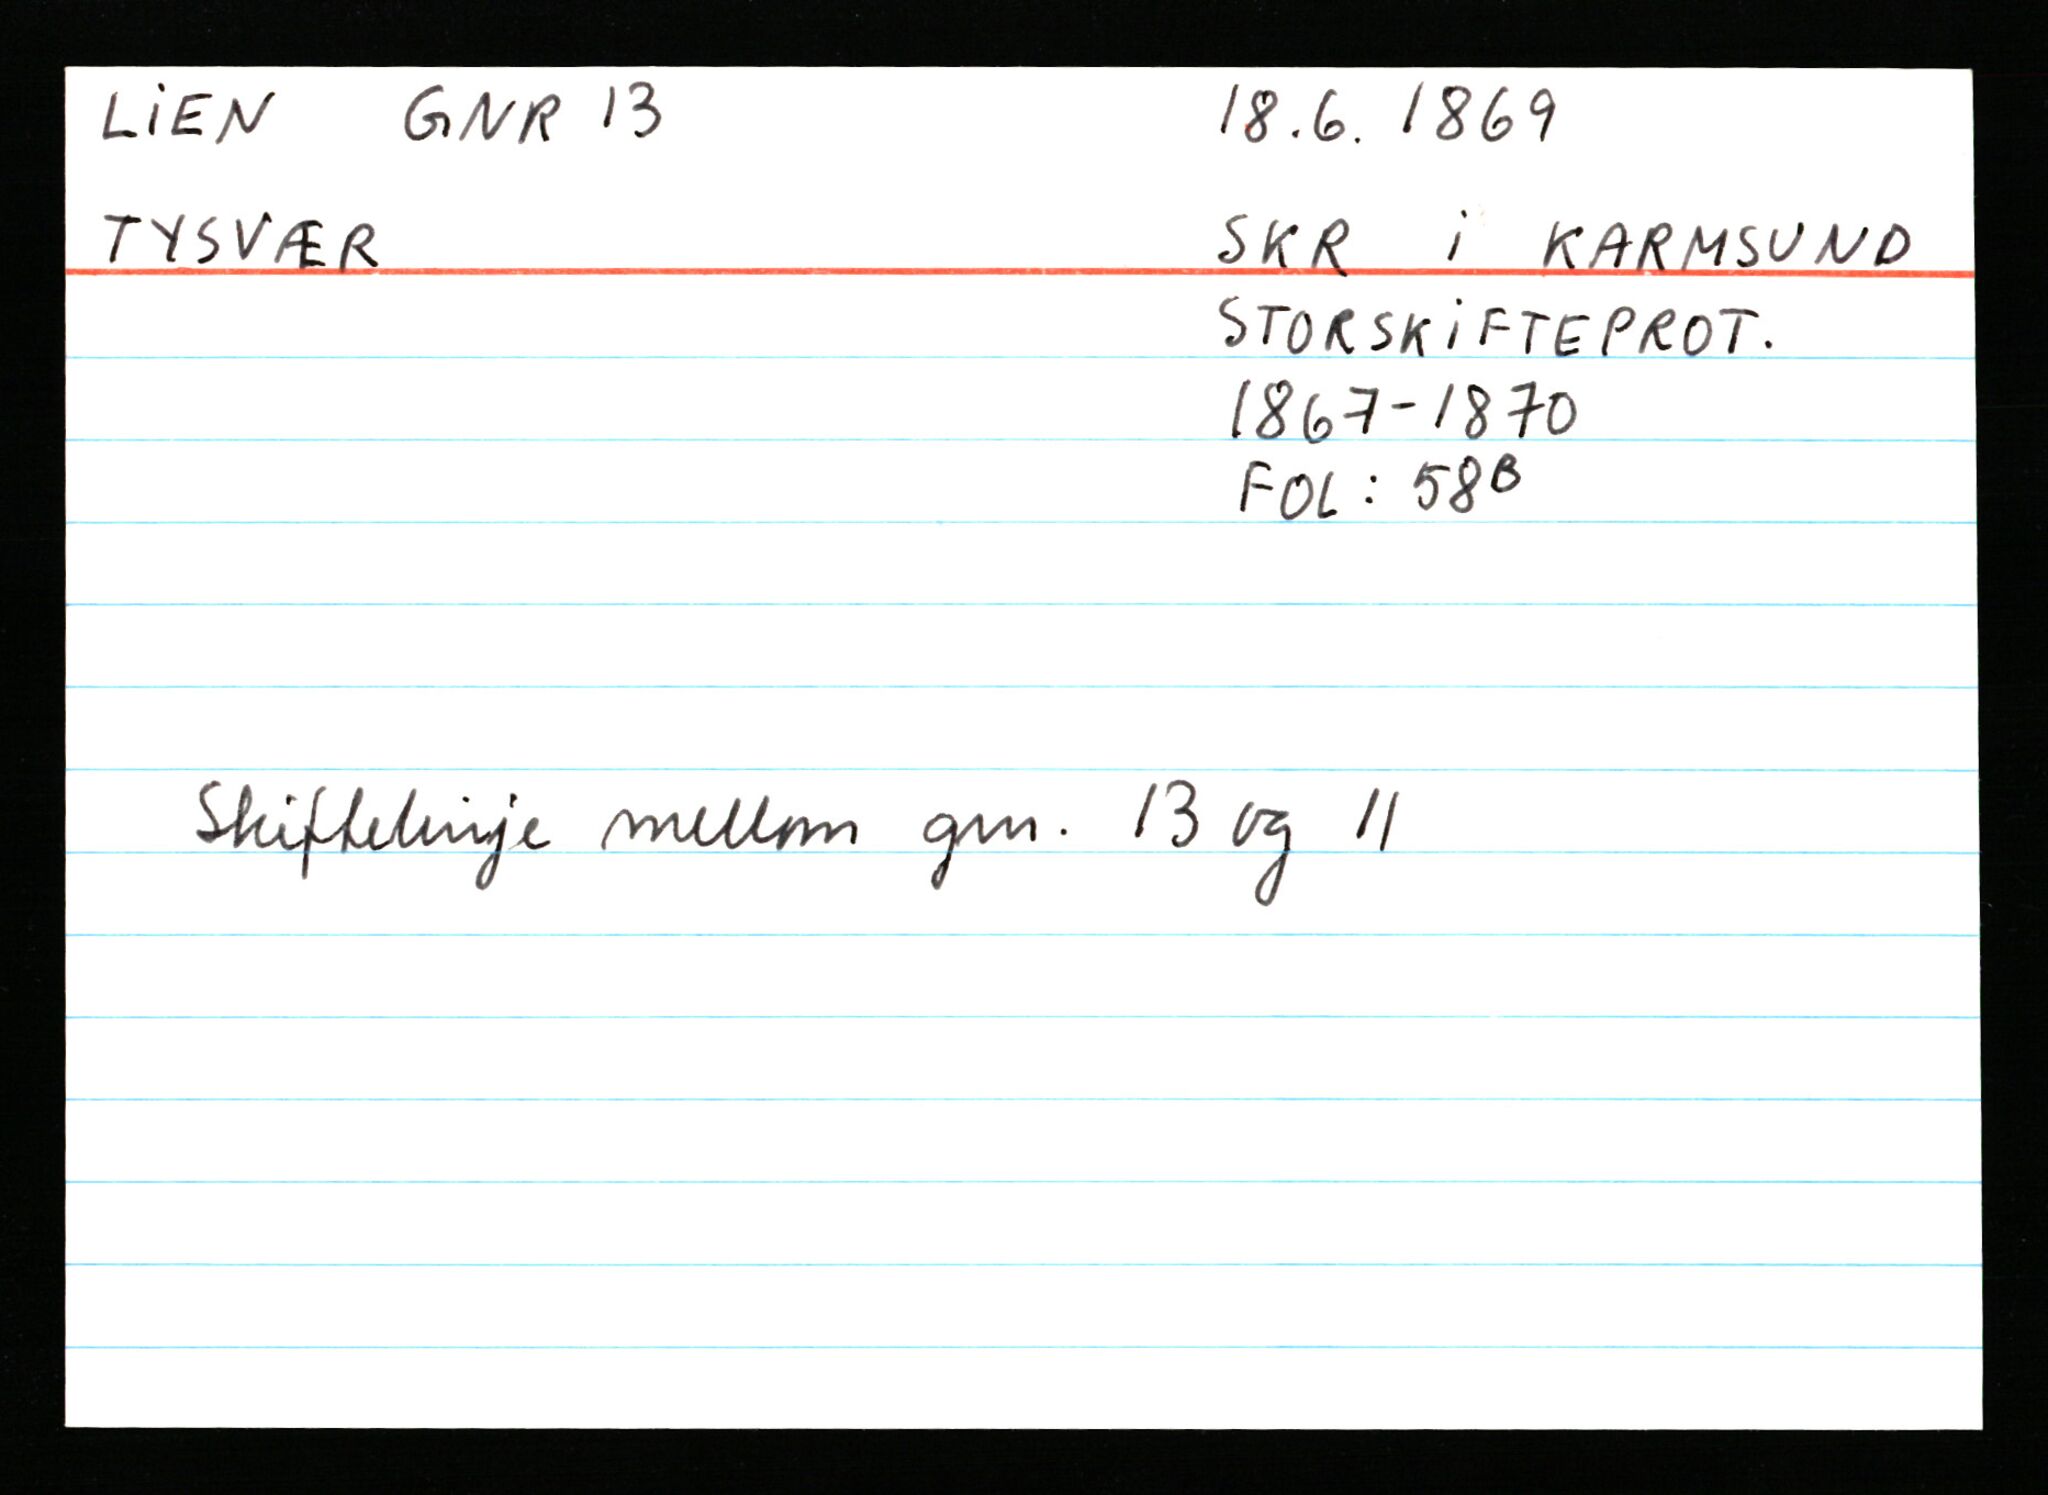 LIEN GNR 13 18.6.1869
TYSVÆR SKR i KARMSUND
STORSKIFTEPROT.
1867-1870
FOL: 58B
Skiftelinje mellom gnr. 13 og 11